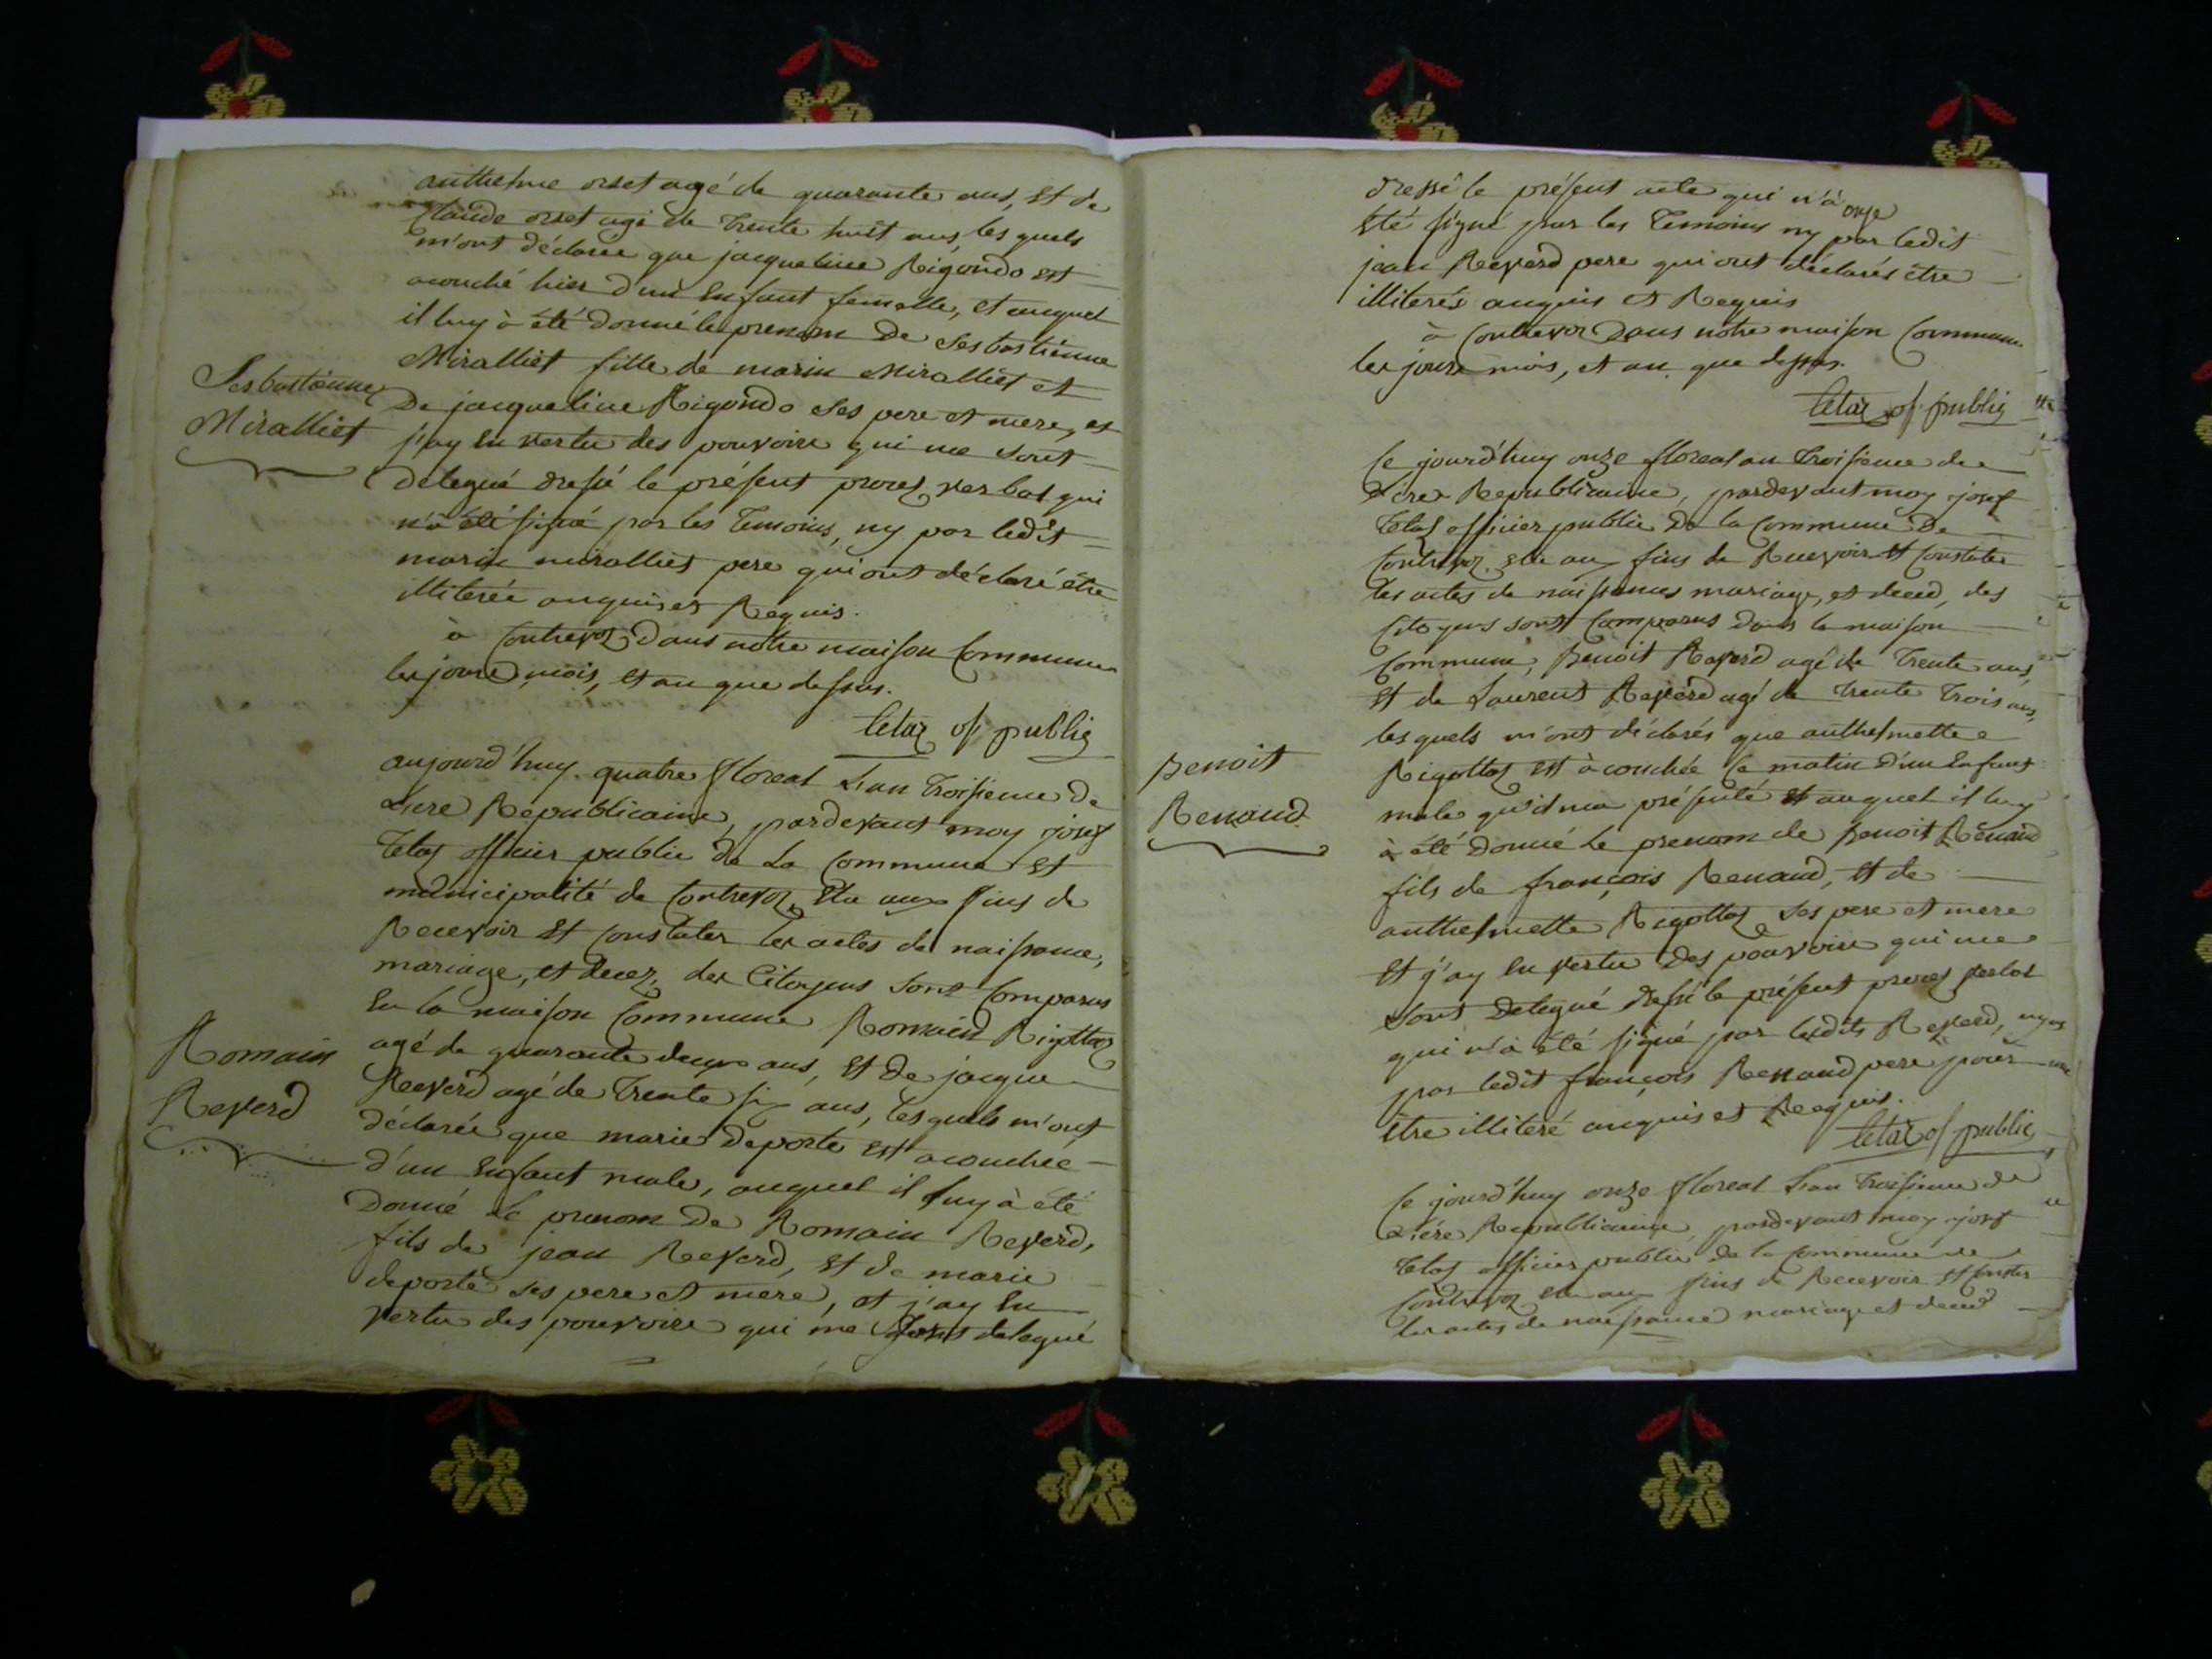 anthelme orset agé de quarante ans, et de
Claude orset agé de trente huit ans, les quels
m'ont déclaree que jacqueline Rigondo est
acouché hier d'un Enfant femelle, et auquel
il luy à été donné le prenom De Sesbastienne
Miralliet fille de marin Miralliet et
Sesbastienne
Miralliet
De jacqueline Rigondo ses pere et mere, et
j'ay En vertu des pouvoire qui me sont
delegué dressé le présent procez verbal qui
n'à été signé par les temoins, ny par ledit
marin miralliet pere qui ont déclaré être
illiterée enquis et Requis.
à Contrevoz Dans notre maison Commune
les jours mois, et an que dessus.
tetaz of public
aujourd'huy quatre floreal L'an troisieme De
L'ere Republicaine, pardevant moy josef
tetaz officier public De La Commune et
municipalité de Contrevoz, Elu aux fins de
Recevoir Et Constater les actes de naissance,
mariage, et decez, des Citoyens sont Comparus
En la maison Commune Romain Rigottaz
agé de quarante deux ans, Et De jacque
Romain
Reverd
Reverd agé de trente six ans, les quels m'ont
déclarée que marie Deporte est acouchee
d'un Enfant male, auquel il luy à été
Donné le prenom De Romain Reverd,
fils de jean Reverd, Et de marie
deporte ses pere et mere, et j'ay En
vertu des pouvoire qui me sont delegué
dressé le présent acte qui n'à
Eté signé par les temoins ny par ledit
jean Reverd pere qui ont déclarés être
illiterés enquis et Requis
à Contrevoz Dans notre maison Commune
les jours mois, et an que dessus.
tetaz of public
Ce jourd'huy onze floreal an troisieme de
L'ere Republicaine, pardevant moy josef
tetaz officier public De la Commune De
Contrevoz Elu aux fins de Recevoir Et Constater
les actes de naissances mariage, et deced, des
Citoyens sont Comparus Dans la maison
Commune, Benoit Reverd agé de trente ans,
Et de Laurent Reverd agé de trente trois ans,
les quels m'ont déclarés que anthelmette
Rigottaz est àcouchée Ce matin d'un Enfant
Benoit
Renaud
male qu'il ma présenté Et auquel il luy
à été Donné le prenom de Benoit Renaud
fils de françois Renaud, Et de
anthelmette Rigottaz ses pere et mere
Et j'ay En vertu Des pouvoire qui me
sont Delegué dressé le présent procez verbal
qui n'à été signé par lesdits Reverd, ny
par ledit françois Renaud pere pour
être illiteré enquis et Requis.
tetaz of public
Ce jourd'huy onze floreal L'an troisieme de
L'ére Republicaine pardevant moy josef
tetaz officier public de la Commune de
Contrevoz Elu aux fins de Recevoir Et Conster
les actes de naissance mariage et deced